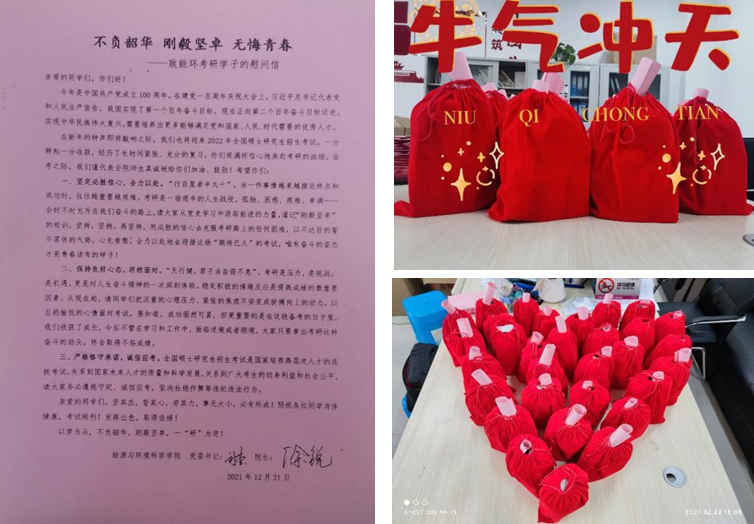 不负韶华 刚毅坚卓 无悔青春
——致能环考研学子的慰问信
亲爱的同学们，你们好！
今年是中国共产党成立100周年。在建党一百周年庆祝大会上，习近平总书记代表党
和人民庄严宣告，我国实现了第一个百年奋斗目标，现在正向第二个百年奋斗目标迈进。
实现中华民族伟大复兴，需要培养出更多能够满足党和国家、人民、时代需要的优秀人才。
在新年的钟声即将敲响之际，我们也将迎来2022年全国硕士研究生招生考试。一分
耕耘一分收获，经历了长时间紧张、充分的复习，你们将满怀信心地奔赴考研的战场。临
考之际，我们谨代表全院师生真诚地给你们加油、鼓劲！希望你们：
一、坚定必胜信心，全力以赴。“行百里者半九十”，当一件事情越来越接近终点和
成功时，往往越重要越艰难。考研是一场艰辛的人生战役，孤独、困惑、艰难、单调……
会时不时充斥在我们奋斗的路上，请大家从党史学习中汲取前进的力量，谨记“刚毅坚卓”
的校训，坚持、坚持、再坚持，用必胜的信心去克服考研路上的任何困难，以不达目的誓
不罢休的气势，心无旁骛，全力以赴地去迎接这场“期待已久”的考试，唯有奋斗的姿态
才是青春该有的样子！
二、保持良好心态，坦然面对。“天行健，君子当自强不息”，考研是压力，是挑战，
是机遇，更是对人生奋斗精神的一次深刻体验。稳定积极的情绪反应是提高成绩的重要
因素，从现在起，请同学们把沉重的心理压力、紧张的焦虑不安变成拼搏向上的动力，以
自然愉悦的心情面对考试。要知道，成功固然可喜，但更重要的是在这段备考的日子里，
我们收获了成长。今后不管在学习和工作中，面临逆境或者顺境，大家只要拿出考研这种
奋斗的劲头，终会取得不俗成绩。
三、严格恪守承诺，诚信应考。全国硕士研究生招生考试是国家培养高层次人才的选
拔考试，关系到国家未来人才的质量和科学发展，关系到广大考生的切身利益和社会公平。
请大家务必遵规守纪、诚信应考，坚决杜绝作弊等违纪违法行为。
亲爱的同学们，坚其志，苦其心，劳其力，事无大小，必有所成！预祝各位同学身体
健康，考试顺利！发挥出色，取得佳绩！
以梦为马，不负韶华，刚毅坚卓，一“研”为定！
能源与环境科学学院 党委书记： 院长：徐锐
2021年12月21日
牛气冲天
NIU QI CHONG TIAN
SHOT ON MI 11
2021.12.23